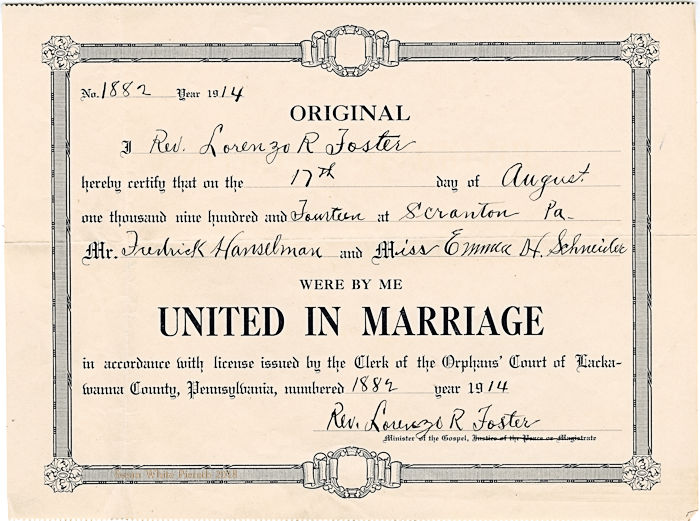 No. 1882 Year 1914
ORIGINAL
I Rev. Lorenzo R Foster
hereby certify that on the 17th day of August
one thousand nine hundred and Fourteen at Scranton Pa.
Mr. Fredrick Hanselman and Miss Emma H. Schneider
WERE BY ME
UNITED IN MARRIAGE
in accordance with license issued by the Clerk of the Orphans' Court of Lacka-
wanna County, Pennsylvania, numbered 1882 year 1914
Rev. Lorenzo R Foster
Minister of the Gospel, Justice of the Peace or Magistrate